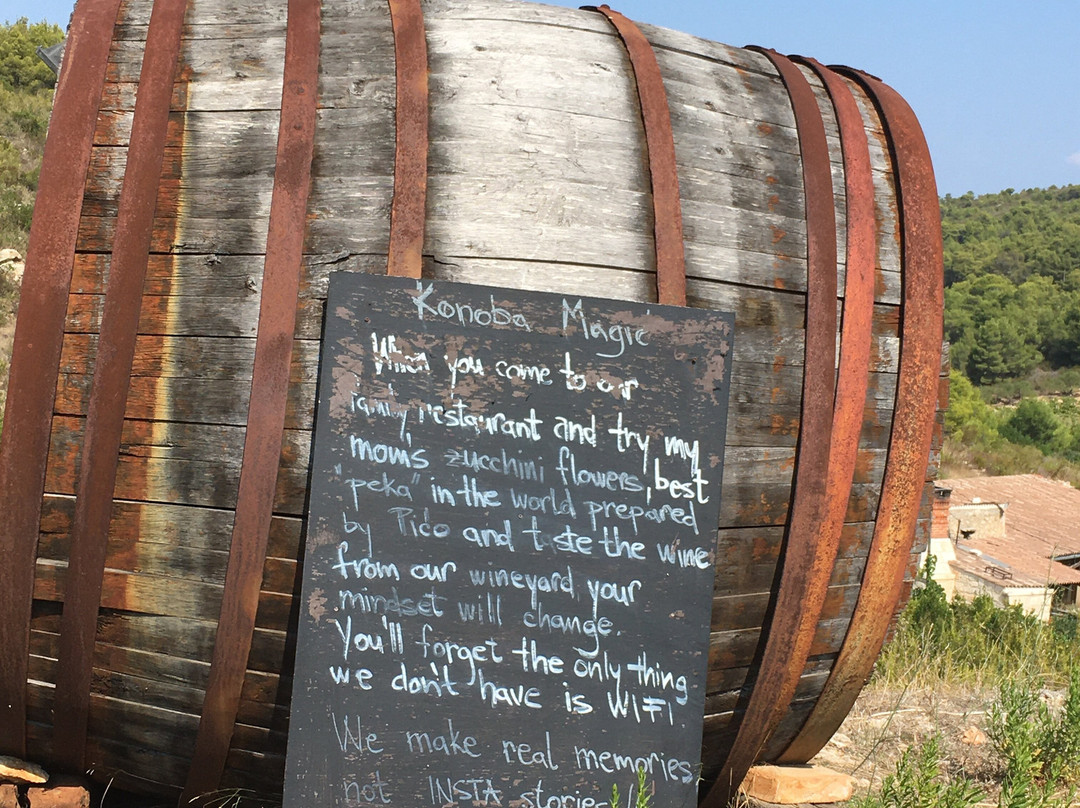 Konoba Magic
When you come to our
family restaurant and try my
mom's zucchini flowers, best
"peka" in the world prepared
by Pićo and taste the wine
from our wineyard, your
mindset will change.
You'll forget the only thing
we don't have is WIFI.
We make real memories,
not INSTA stories